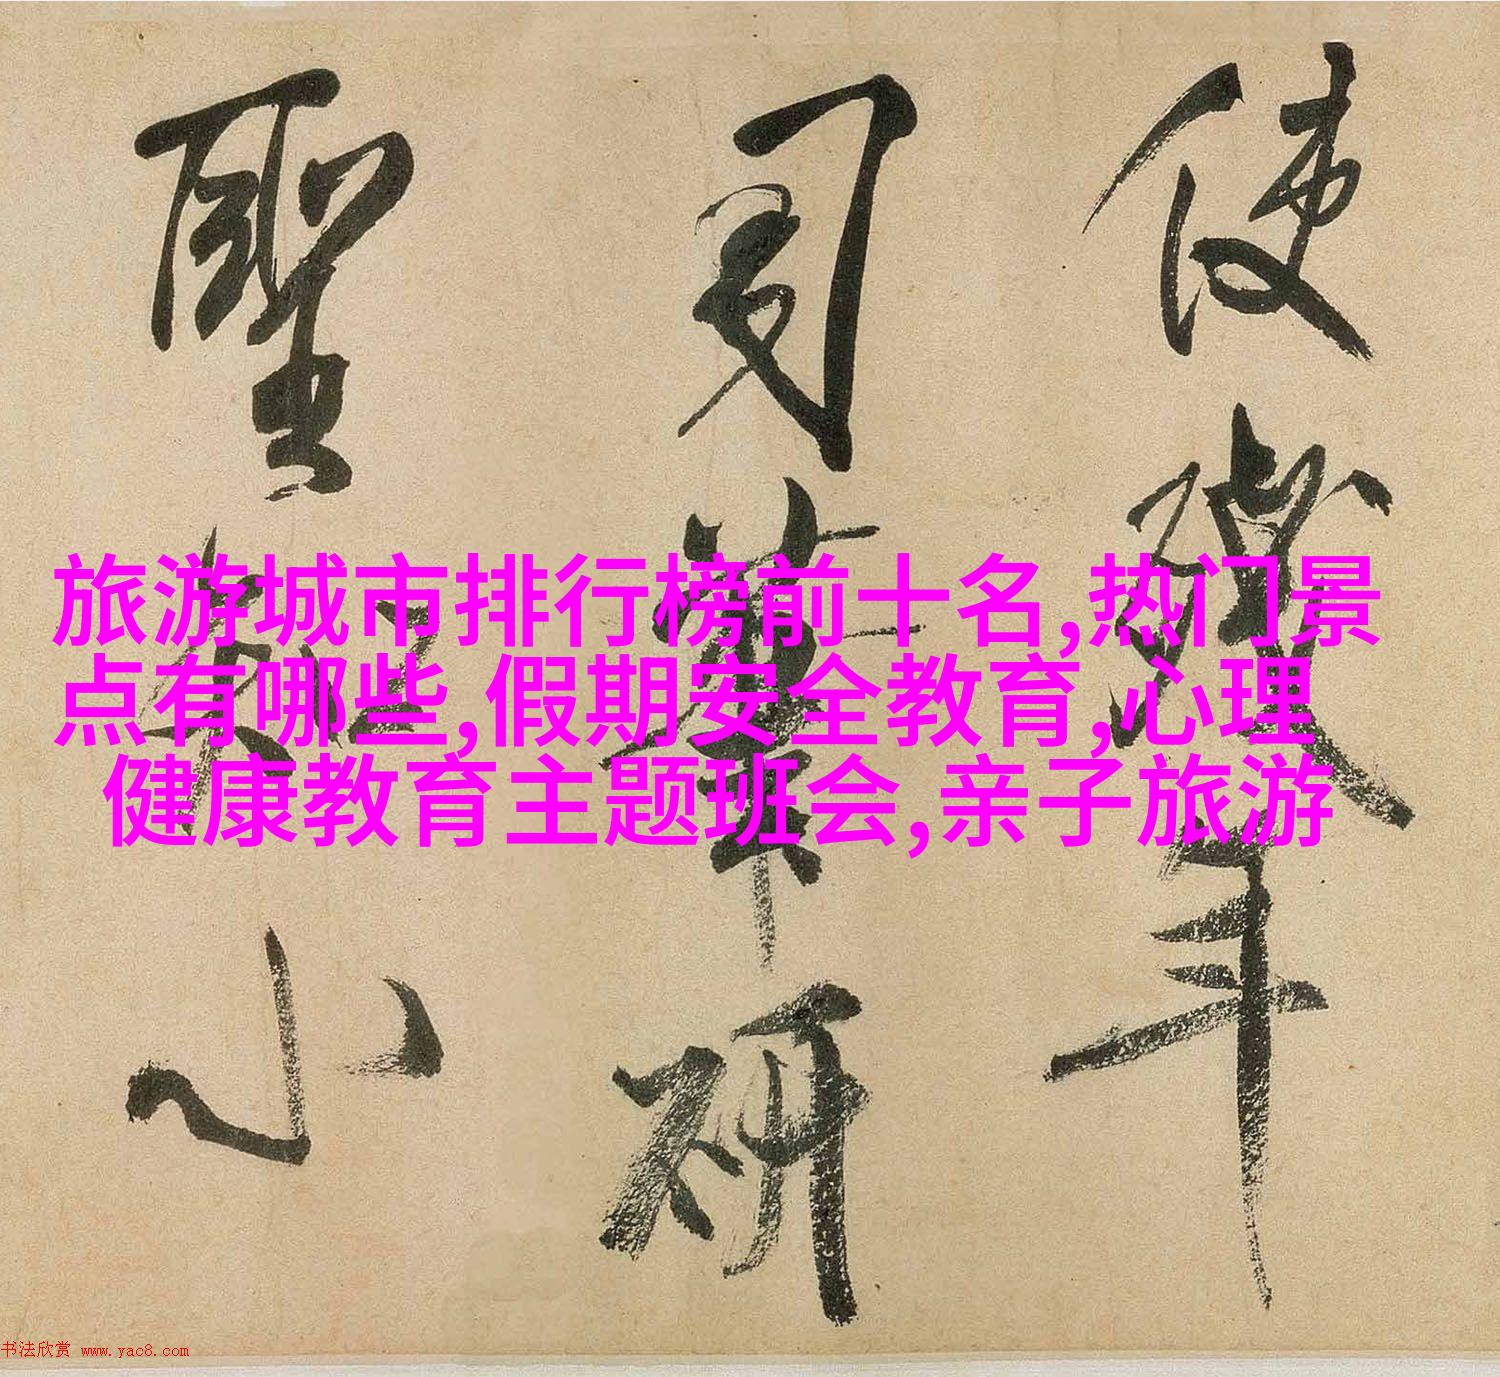 使
残年
司
華研
聖
小
旅游城市排行榜前十名,热门景
点有哪些,假期安全教育,心理
健康教育主题班会,亲子旅游
书法欣赏 www.yac8.com